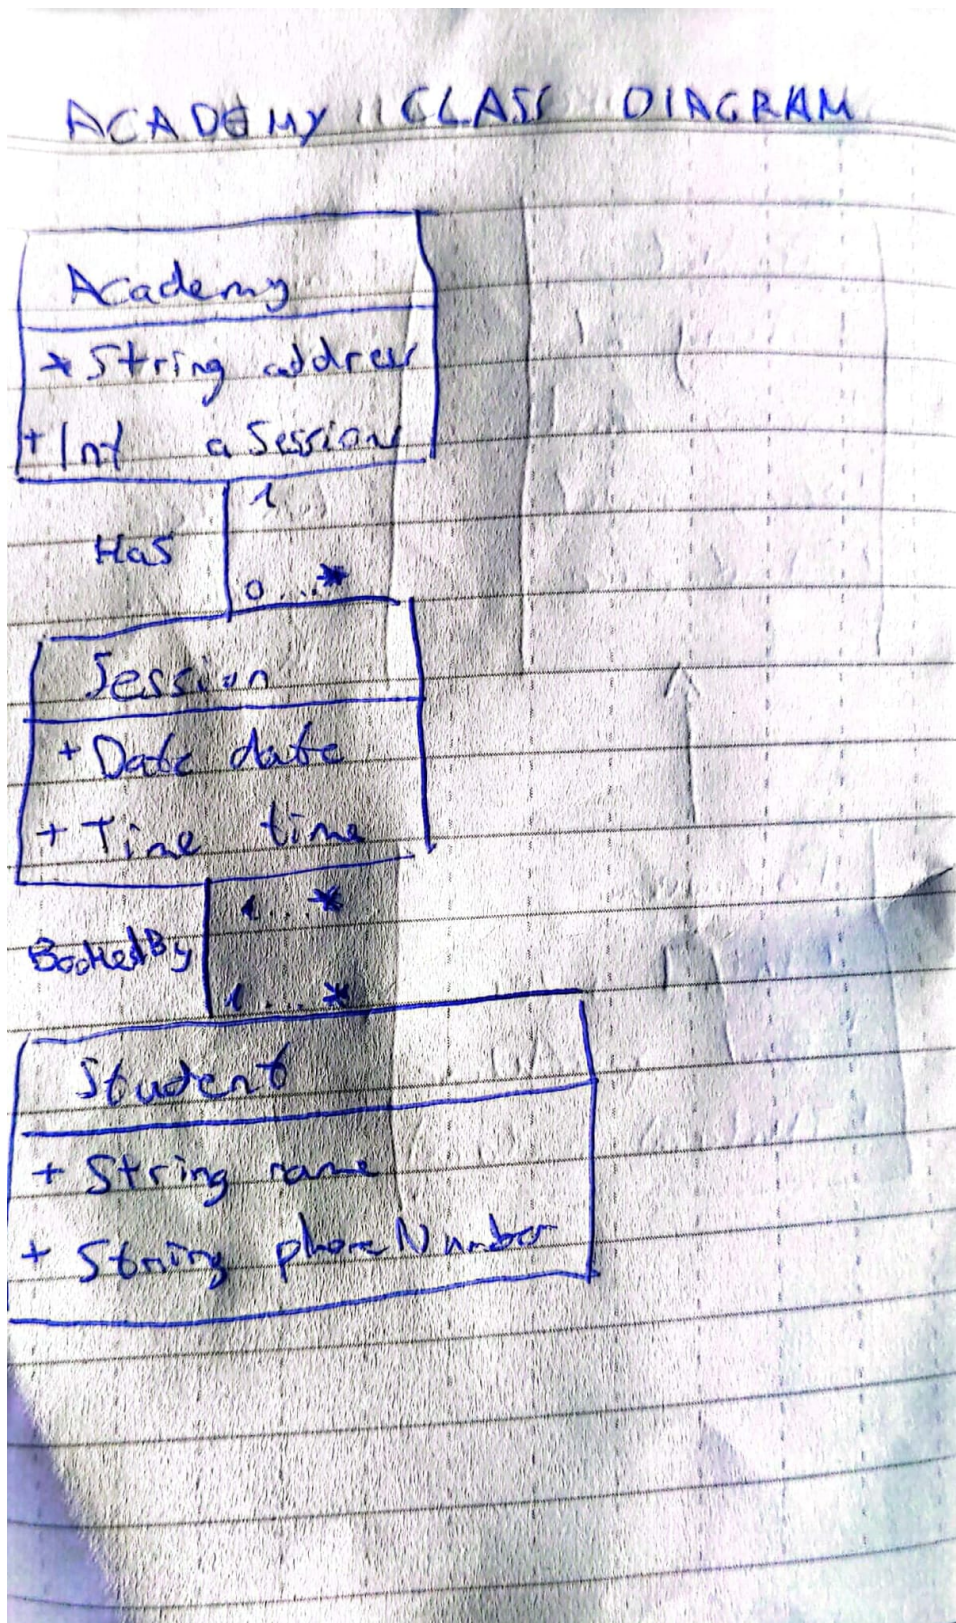 ACADEMY CLASS DIAGRAM
Academy
+ String address
+ Int aSession
1
Has
0...*
Session
+ Date date
+ Time time
1...*
BookedBy
1...*
Student
+ String name
+ String phoneNumber